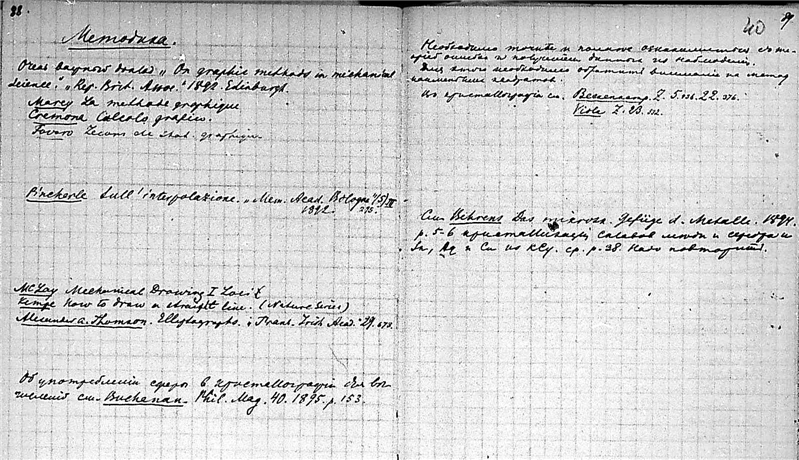 38.
Методика.
Hele Shaw "On graphic methods in mechanical
science." "Rep. Brit. Assoc." 1892. Edinburgh.
Marey La methode graphique
Cremona Calcolo grafico.
Favaro Leçons de stat. graphique
Pincherle Sull' interpolazione. "Mem. Acad. Bologna" (5) III
1892. 293.
McLay Mechanical Drawing I
Kempe How to draw a straight line. (Nature Series)
Alexander a. Thomson. Elliptographs. "Trans. Irish Acad." 29. 673.
Об употреблении сферы в кристаллографии для вы-
числений см. Buchanan. Phil. Mag. 40. 1895. p. 153.
40
Необходимо точнее и полнее ознакомиться с те-
орией ошибок и получением данных из наблюдений.
Для этого необходимо обратить внимание на метод
наименьших квадратов.
Из кристаллографии см. Beckenkamp. Z. 5. 22.
Viola Z. 23.
См. Behrens Das microsk. Gefüge d. Metalle. 1894.
p. 5-6 кристаллизация сплавов меди и серебра и
Sn, Ag и Cu из KCy. ср. p. 38. Надо повторить.